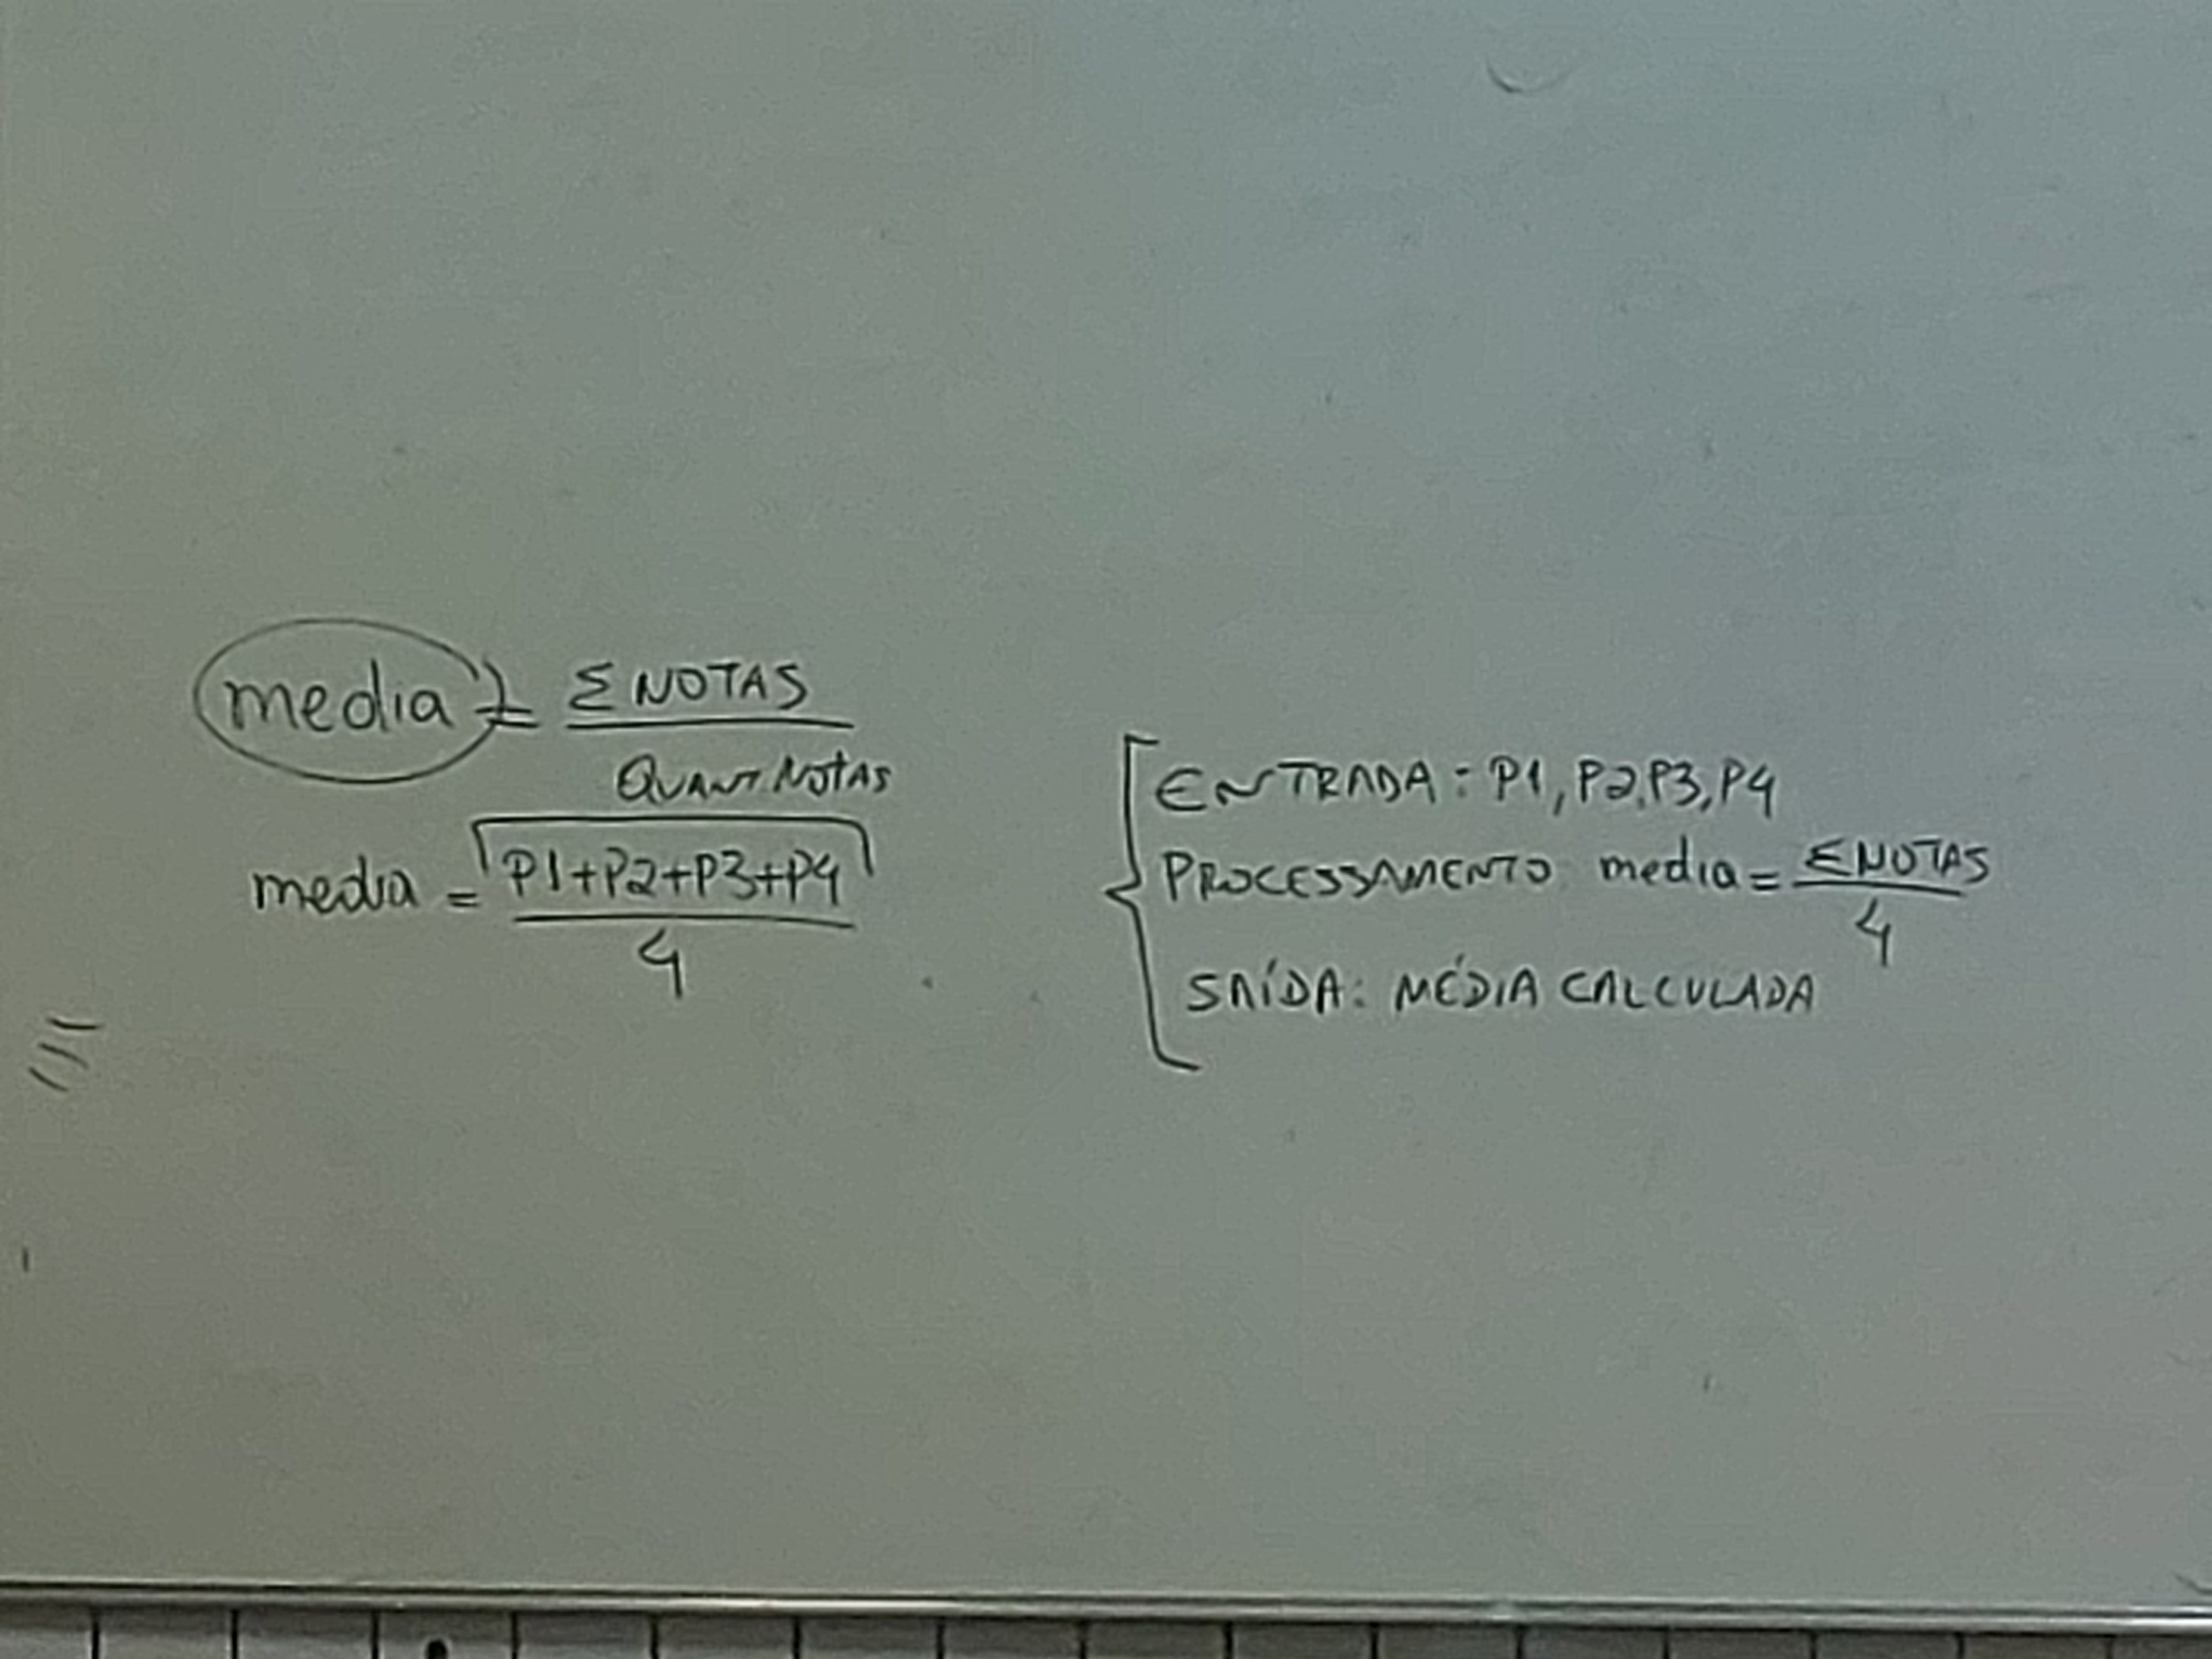 media = Σ NOTAS
QUANT. NOTAS
media = P1+P2+P3+P4
4
ENTRADA: P1, P2, P3, P4
PROCESSAMENTO media = Σ NOTAS
4
SAÍDA: MÉDIA CALCULADA